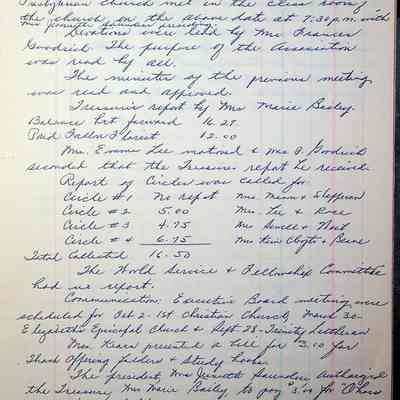 Presbyterian Church met in the class room
the church on the above date at 7:30 p.m. with
Mrs Jeanette Saunders presiding.
Devotions were held by Mrs Frances
Goodrich. The purpose of the Association
was read by all.
The minutes of the previous meeting
was read and approved.
Treasurer's report by Mrs Marie Bailey.
Balance brt forward 16.29
Paid Fallon Florest 12.00
Mrs. Emma Lee motioned & Mrs F. Goodrich
seconded that the Treasure. report be received.
Report of Circles was called for.
Circle #1 No repot Mrs. Mann &
Circle #2 5.00 Mrs. Lee & Rose
Circle #3 4.75 Mrs Sewell &
Circle #4 6.75 Mrs
Total Collected 16.50
The World Service & Fellowship Committee
had no report.
Communication: Executive Board meeting were
scheduled for Oct 2 - 1st Christian Church, March 30 -
Elizabeths Episcopal Church & Sept 28 - Trinity Lutheran
Mrs. Kears presented a bill for $3.10 for
Thank Offering folders & study books
The president, Mrs Jenette Saunders authorized
the Treasure, Mrs Marie Bailey, to pay $3.10 for